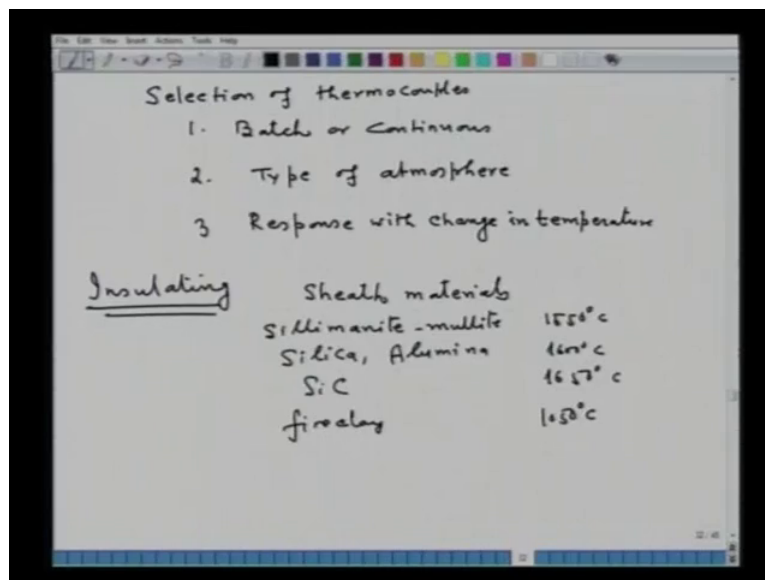 File Edit View Insert Actions Tools Help
Selection of thermocouples
1. Batch or Continuous
2. Type of atmosphere
3 Response with change in temperature
Insulating Sheath materials
Sillimanite-mullite 1550°C
Silica, Alumina 1600°C
SiC 1650°C
fireclay 1050°C